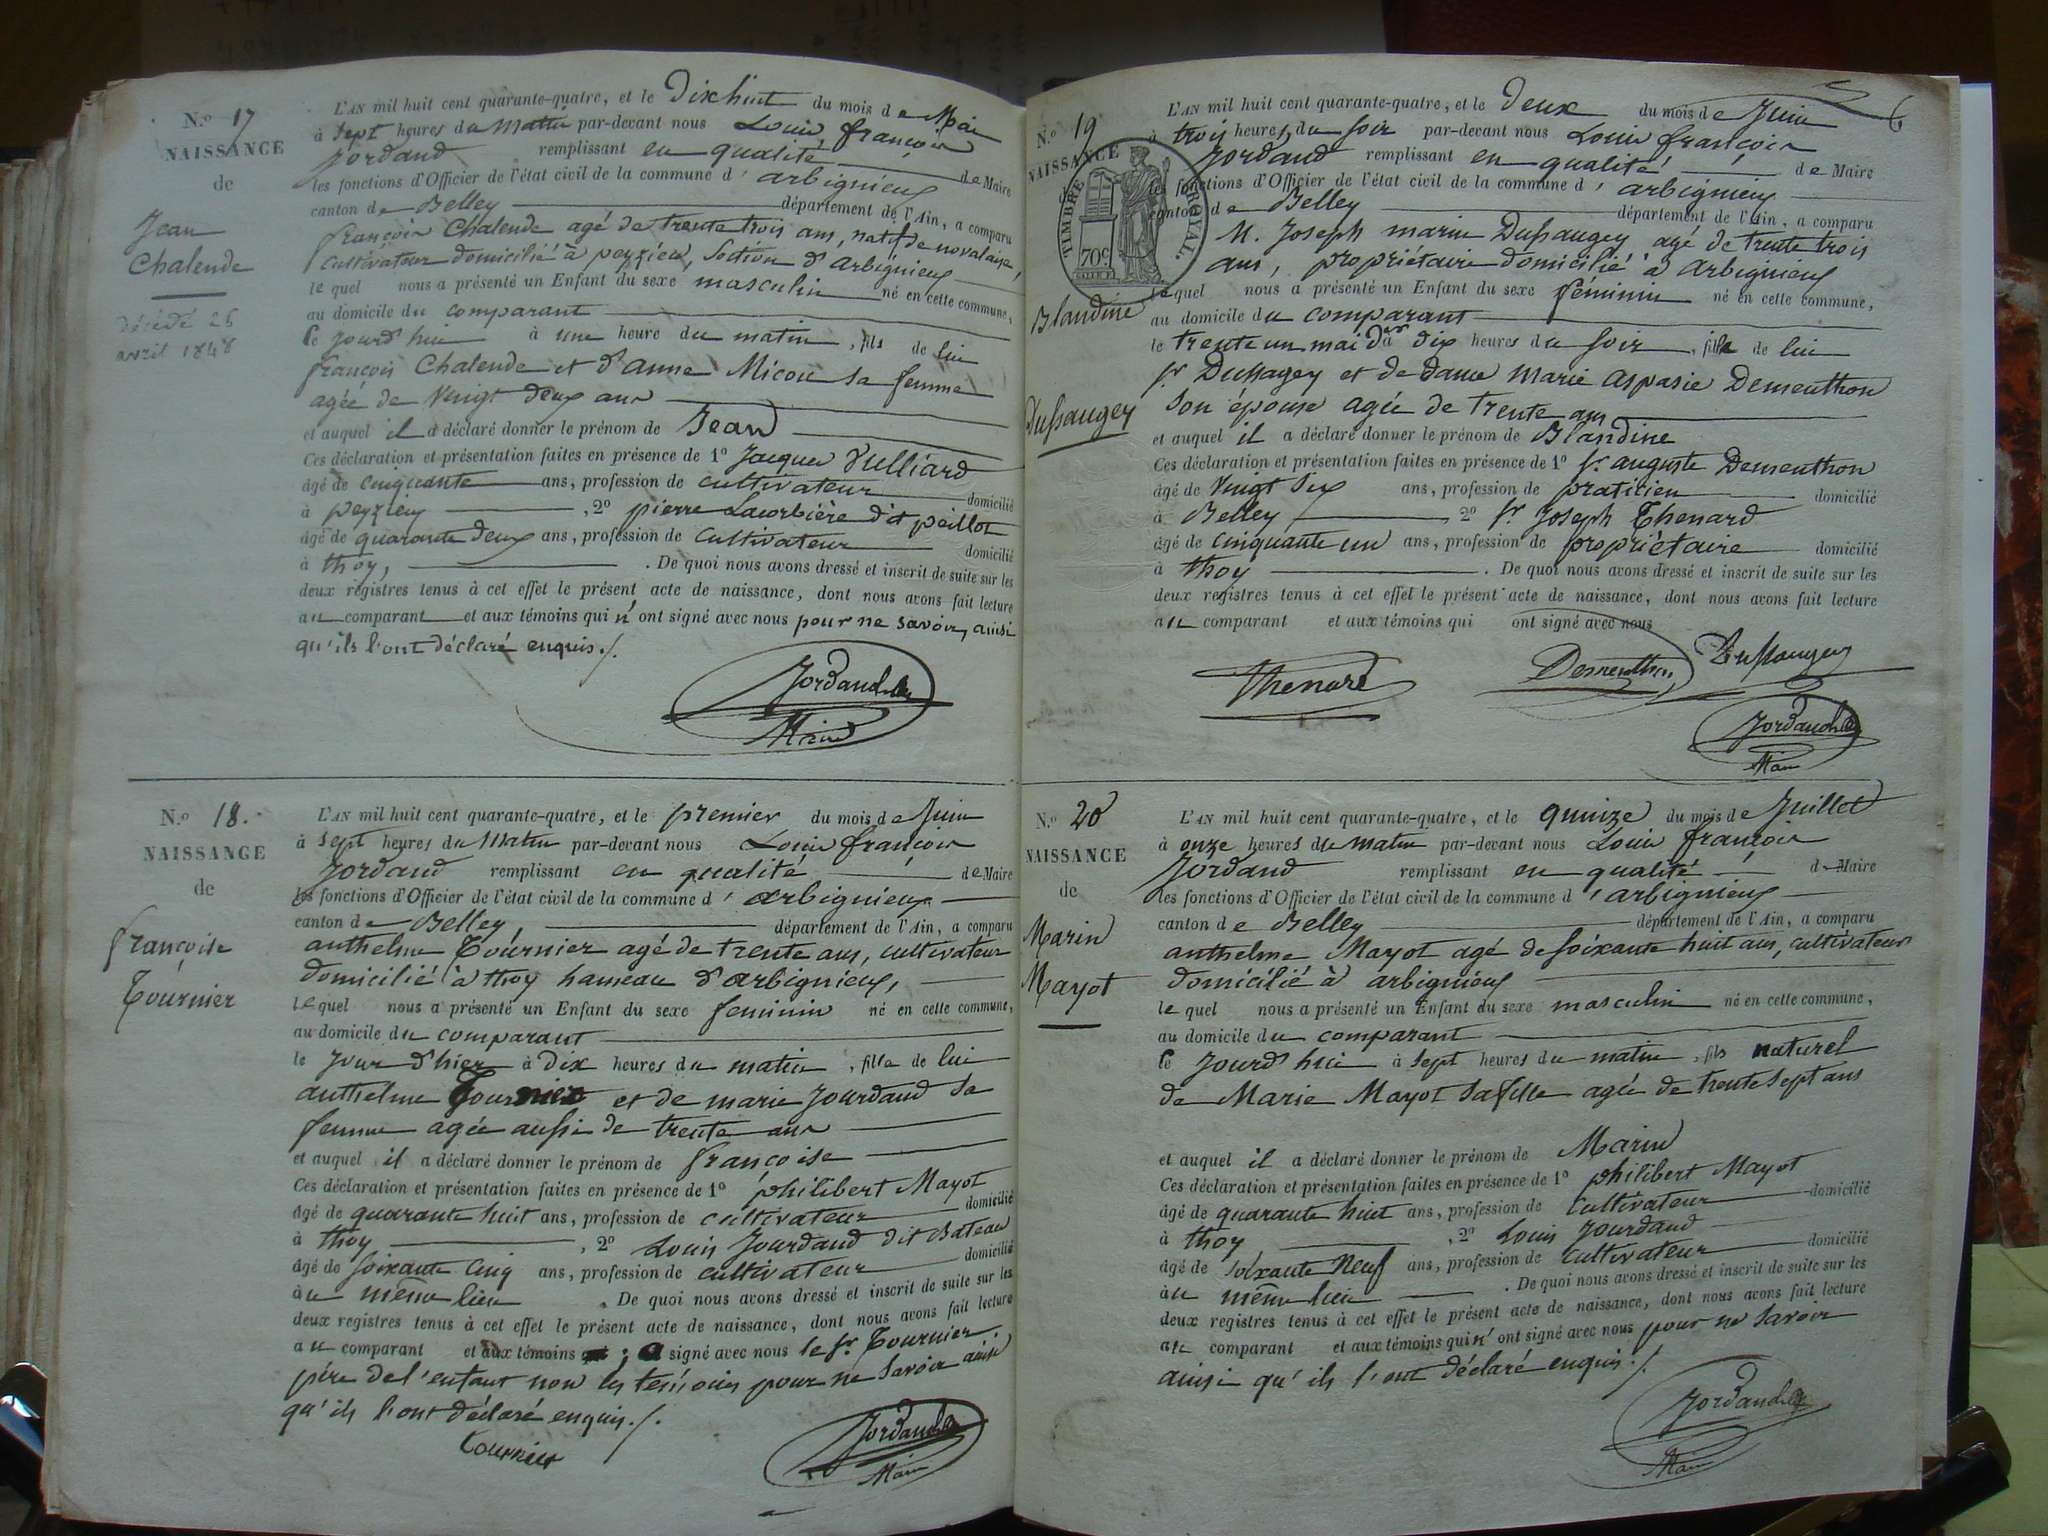 N.o 17
NAISSANCE
de
Jean
Chalende
décédé 25
avril 1848
L'AN mil huit cent quarante-quatre, et le Dixhuit du mois de Mai
à sept heures du matin par-devant nous Louis, françois
Jordand remplissant en qualité de Maire
les fonctions d'Officier de l'état civil de la commune d'arbignieux
canton de Belley département de l'Ain, a comparu
françois Chalende agé de trente trois ans, natif de novalaise,
cultivateur domicilié à peyzieu, Section d'arbignieux
lequel nous a présenté un Enfant du sexe masculin né en cette commune,
au domicile du comparant
le jourd'hui à une heure du matin, fils de lui
françois Chalende et d'anne Micou sa femme
agée de Vingt deux ans
et auquel il a déclaré donner le prénom de Jean
Ces déclaration et présentation faites en présence de 1o Jacques Vulliard
âgé de cinquante ans, profession de cultivateur domicilié
à peyzieux, 2o pierre Lacorbière dit peillot
âgé de quarante deux ans, profession de cultivateur domicilié
à thoy, . De quoi nous avons dressé et inscrit de suite sur les
deux registres tenus à cet effet le présent acte de naissance, dont nous avons fait lecture
au comparant et aux témoins qui n'ont signé avec nous pour ne savoir, ainsi
qu'ils l'ont déclaré enquis ./.
Jordand
Maire
N.o 18.
NAISSANCE
de
françoise
Tournier
L'AN mil huit cent quarante-quatre, et le premier du mois de Juin
à sept heures du matin par-devant nous Louis françois
Jordand remplissant en qualité de Maire
les fonctions d'Officier de l'état civil de la commune d'arbignieux
canton de Belley, département de l'Ain, a comparu
anthelme Tournier agé de trente ans, cultivateur
domicilié à thoy hameau d'arbignieux,
lequel nous a présenté un Enfant du sexe feminin né en cette commune,
au domicile du comparant
le jour d'hier à Dix heures du matin, fille de lui
anthelme Tournier et de marie Jourdand sa
femme agée aussi de trente ans
et auquel il a déclaré donner le prénom de françoise
Ces déclaration et présentation faites en présence de 1o philibert Mayot
âgé de quarante huit ans, profession de cultivateur domicilié
à thoy, 2o Louis Jourdand dit Bateau
âgé de soixante cinq ans, profession de cultivateur domicilié
au même lieu . De quoi nous avons dressé et inscrit de suite sur les
deux registres tenus à cet effet le présent acte de naissance, dont nous avons fait lecture
au comparant et aux témoins ; a signé avec nous le Sr. Tournier
père de l'enfant non les temoins pour ne savoir ainsi
qu'ils l'ont déclaré enquis ./.
tournier
Jordand
Maire
6
N.o 19
NAISSANCE
TIMBRE ROYAL.
70c
Blandine
Dussaugey
L'AN mil huit cent quarante-quatre, et le Deux du mois de Juin
à trois heures du soir par-devant nous Louis françois
Jordand remplissant en qualité de Maire
les fonctions d'Officier de l'état civil de la commune d'arbignieux
canton de Belley département de l'Ain, a comparu
M. Joseph marie Dussaugey agé de trente trois
ans, propriétaire domicilié à arbignieux
lequel nous a présenté un Enfant du sexe féminin né en cette commune,
au domicile du comparant
le trente un mai der à dix heures du soir, fille de lui
Sr Dussagey et de dame Marie aspasie Dementhon
son épouse agée de trente ans
et auquel il a déclaré donner le prénom de Blandine
Ces déclaration et présentation faites en présence de 1o Sr auguste Dementhon
âgé de Vingt six ans, profession de praticien domicilié
à Belley 2o Sr Joseph Thenard
âgé de cinquante un ans, profession de propriétaire domicilié
à thoy . De quoi nous avons dressé et inscrit de suite sur les
deux registres tenus à cet effet le présent acte de naissance, dont nous avons fait lecture
au comparant et aux témoins qui ont signé avec nous
Thenard Dementhon Dussaugey
Jordand
Maire
N.o 20
NAISSANCE
de
Marin
Mayot
L'AN mil huit cent quarante-quatre, et le quinze du mois de Juillet
à onze heures du matin par-devant nous Louis françois
Jordand remplissant en qualité de Maire
les fonctions d'Officier de l'état civil de la commune d'arbignieux
canton de Belley département de l'Ain, a comparu
anthelme Mayot agé de soixante huit ans, cultivateur
domicilié à arbignieux
lequel nous a présenté un Enfant du sexe masculin né en cette commune,
au domicile du comparant
le jourd'hui à sept heures du matin, fils naturel
de Marie Mayot sa fille agée de trente sept ans
et auquel il a déclaré donner le prénom de Marin
Ces déclaration et présentation faites en présence de 1o philibert Mayot
âgé de quarante huit ans, profession de cultivateur domicilié
à thoy, 2o Louis Jourdand
âgé de soixante neuf ans, profession de cultivateur domicilié
au même lieu . De quoi nous avons dressé et inscrit de suite sur les
deux registres tenus à cet effet le présent acte de naissance, dont nous avons fait lecture
au comparant et aux témoins qui n'ont signé avec nous pour ne savoir
ainsi qu'ils l'ont déclaré enquis ./.
Jordand
Maire